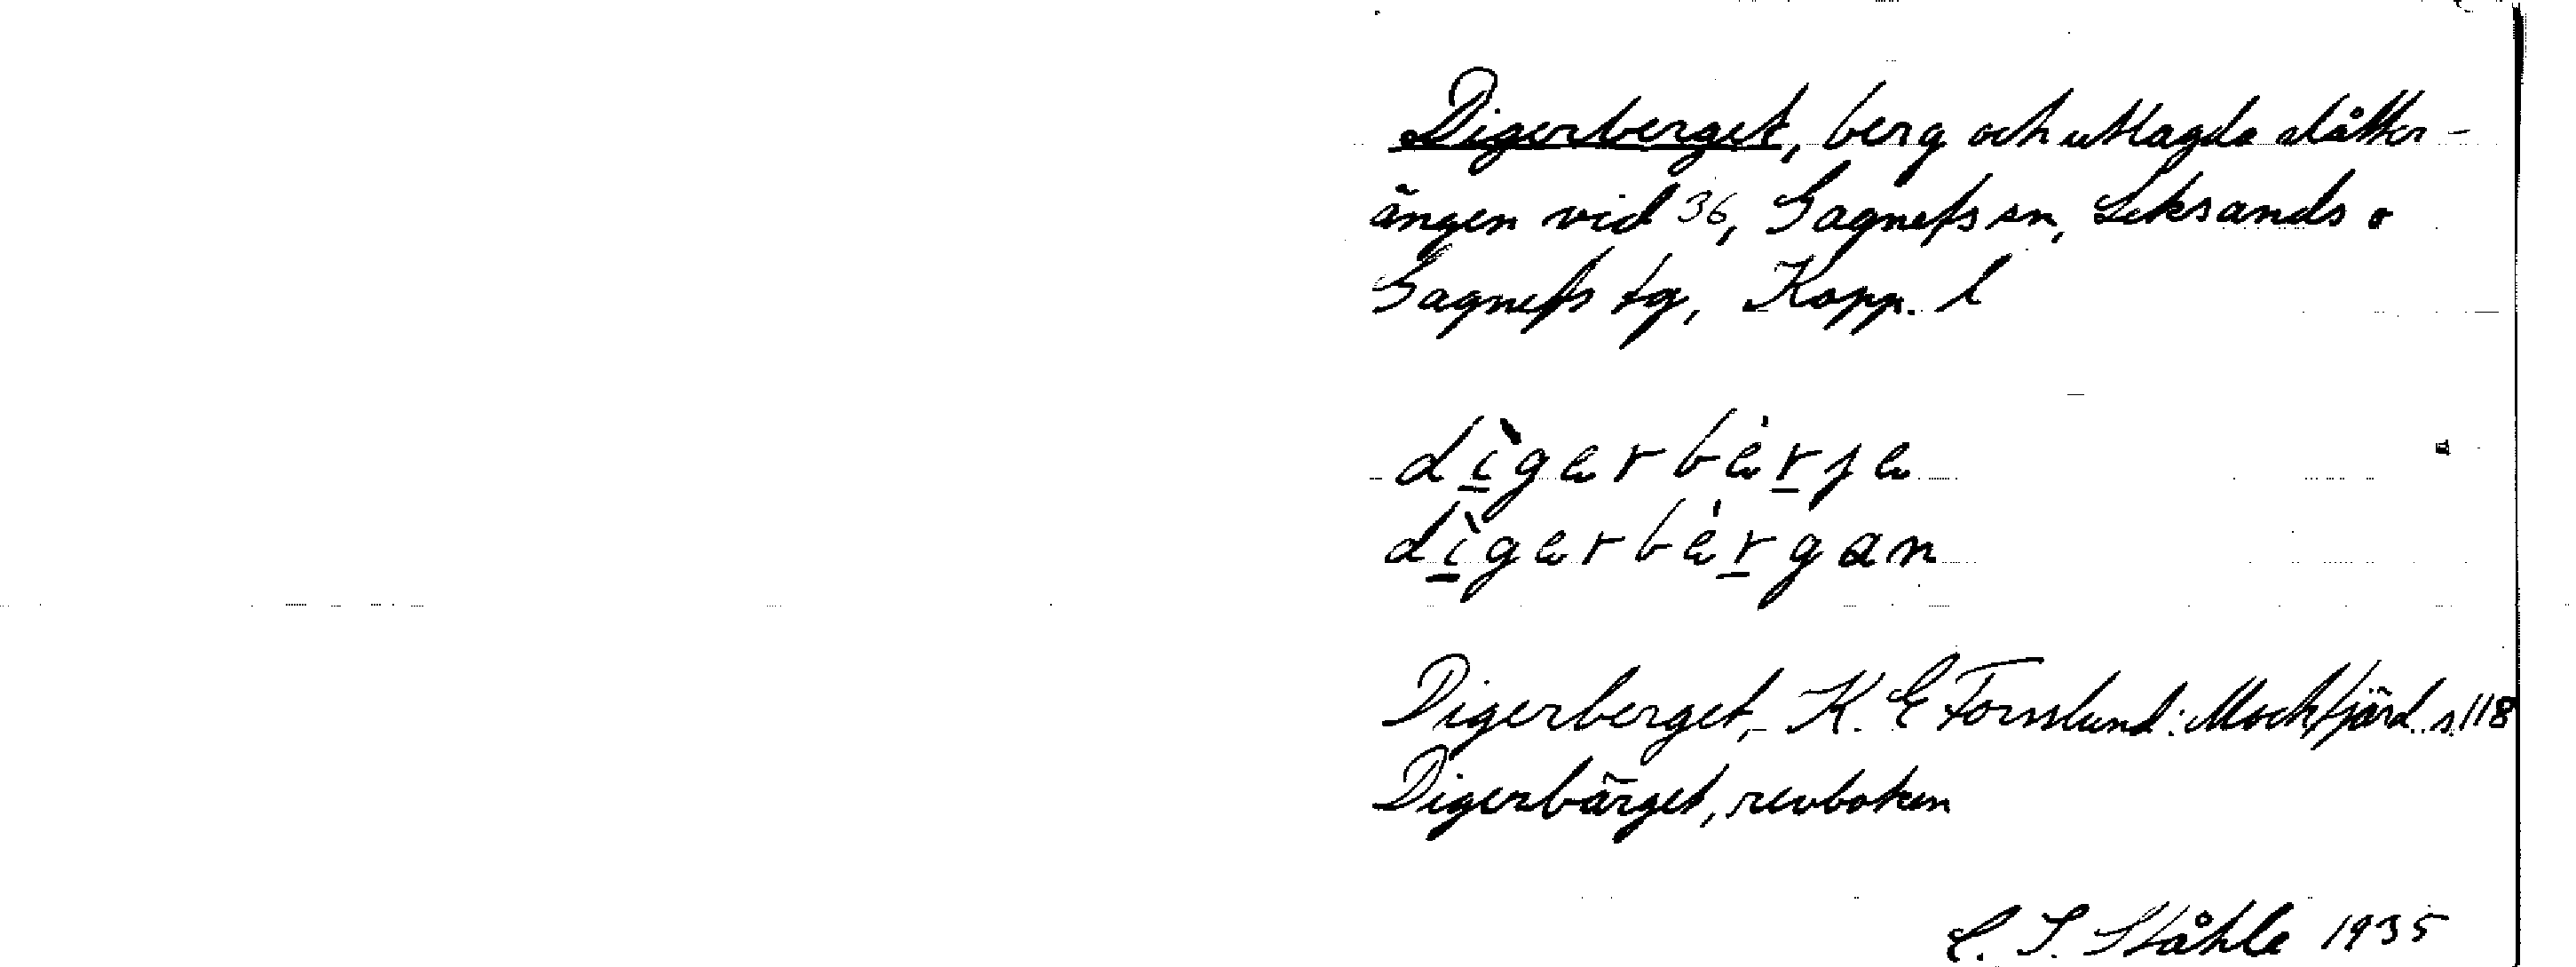 Digerberget, berg och utlagda slåtter-
ängen vid 36, Gagnefs sn, Leksands o
Gagnefs tg, Kopp. l
dìgerbèrje
dìgerbèrgan
Digerberget, K. E Forsslund: Mockfjärd s. 118
Digerbärget, revboken
C. I. Ståhle 1935